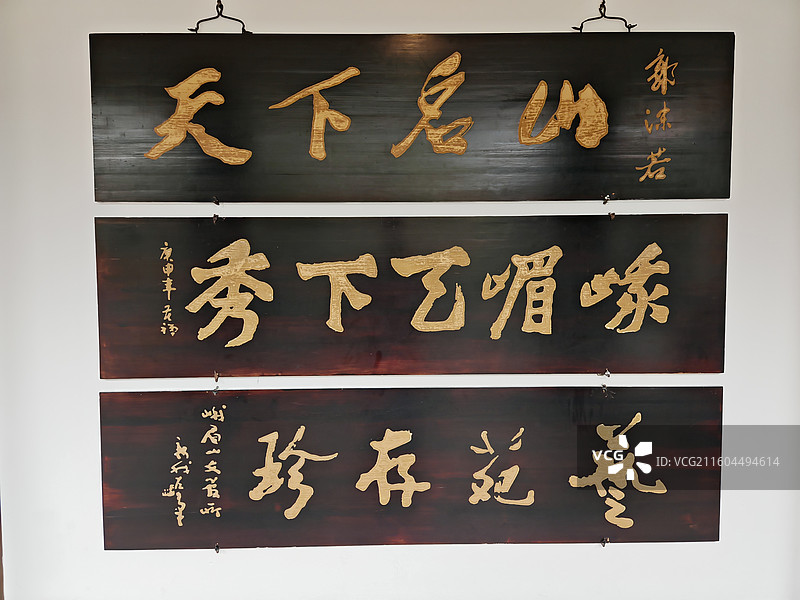 天下名山
郭沫若
峨嵋天下秀
庚申年
藝苑存珍
峨眉山文管所
VCG
VCG
ID:VCG211604494614